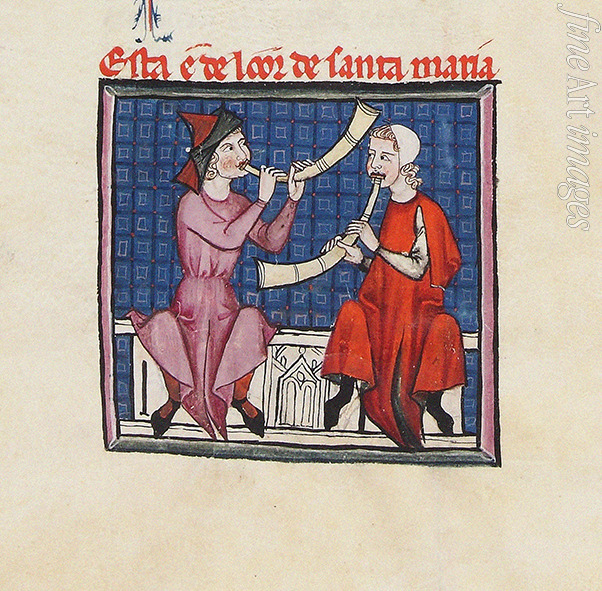 Esta e̅ de loor de santa maria
fineArtimages